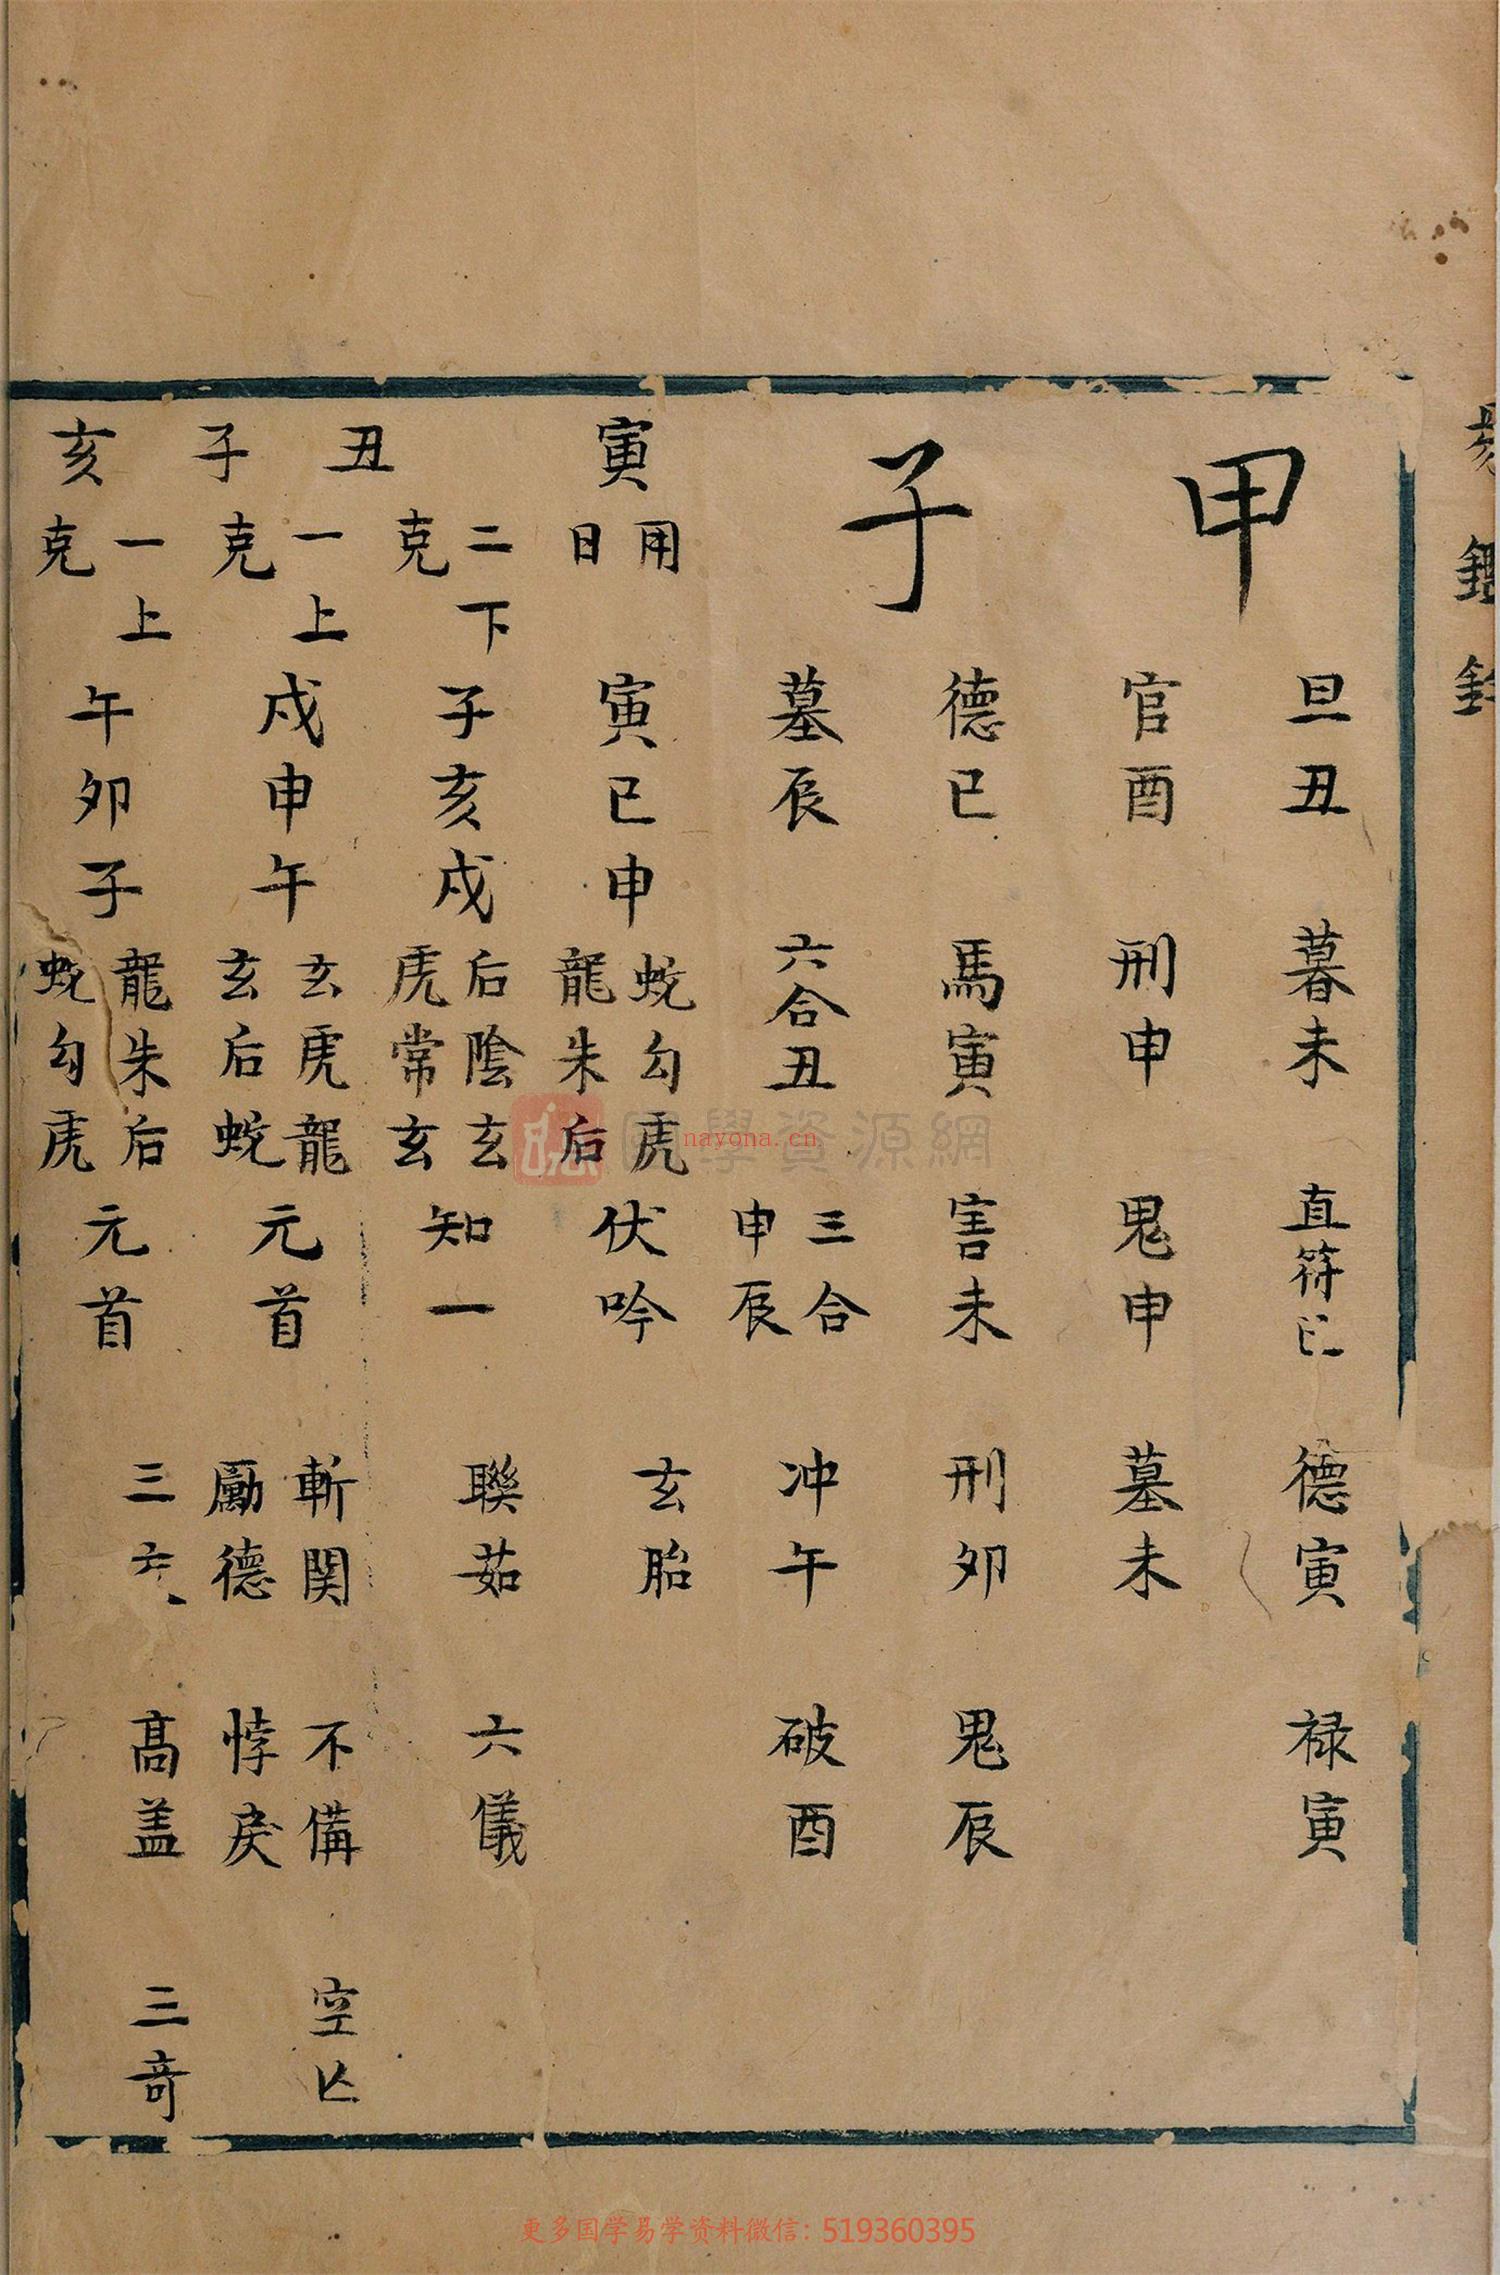 甲子
旦丑 暮未 直符巳 德寅 禄寅
官酉 刑申 鬼申 墓未
德巳 馬寅 害未 刑卯 鬼辰
墓辰 六合丑 三合申辰 冲午 破酉
寅 用日 寅巳申 蛇勾虎 龍朱后 伏吟 玄胎
丑 二下克 子亥戌 后陰玄 虎常玄 知一 聯茹 六儀
子 一上克 戌申午 玄虎龍 玄后蛇 元首 斬関 不備 空亾 勵德 悖戾
亥 一上克 午卯子 龍朱后 蛇勾虎 元首 三交 髙盖 三奇
國學資源網
nayona.cn
更多国学易学资料微信：519360395